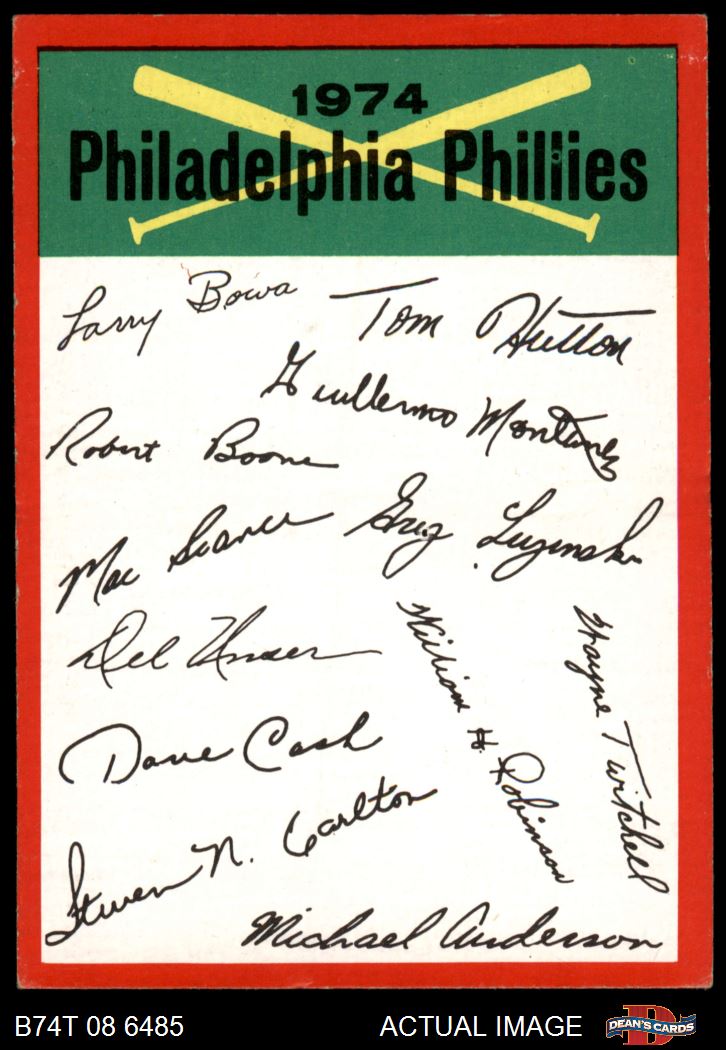 1974
Philadelphia Phillies
Larry Bowa
Tom Hutton
Guillermo Montanez
Robert Boone
Mac Scarce
Greg Luzinski
Del Unser
William H. Robinson
Wayne Twitchell
Dave Cash
Steven N. Carlton
Michael Anderson
B74T 08 6485
ACTUAL IMAGE
D
DEAN'S CARDS